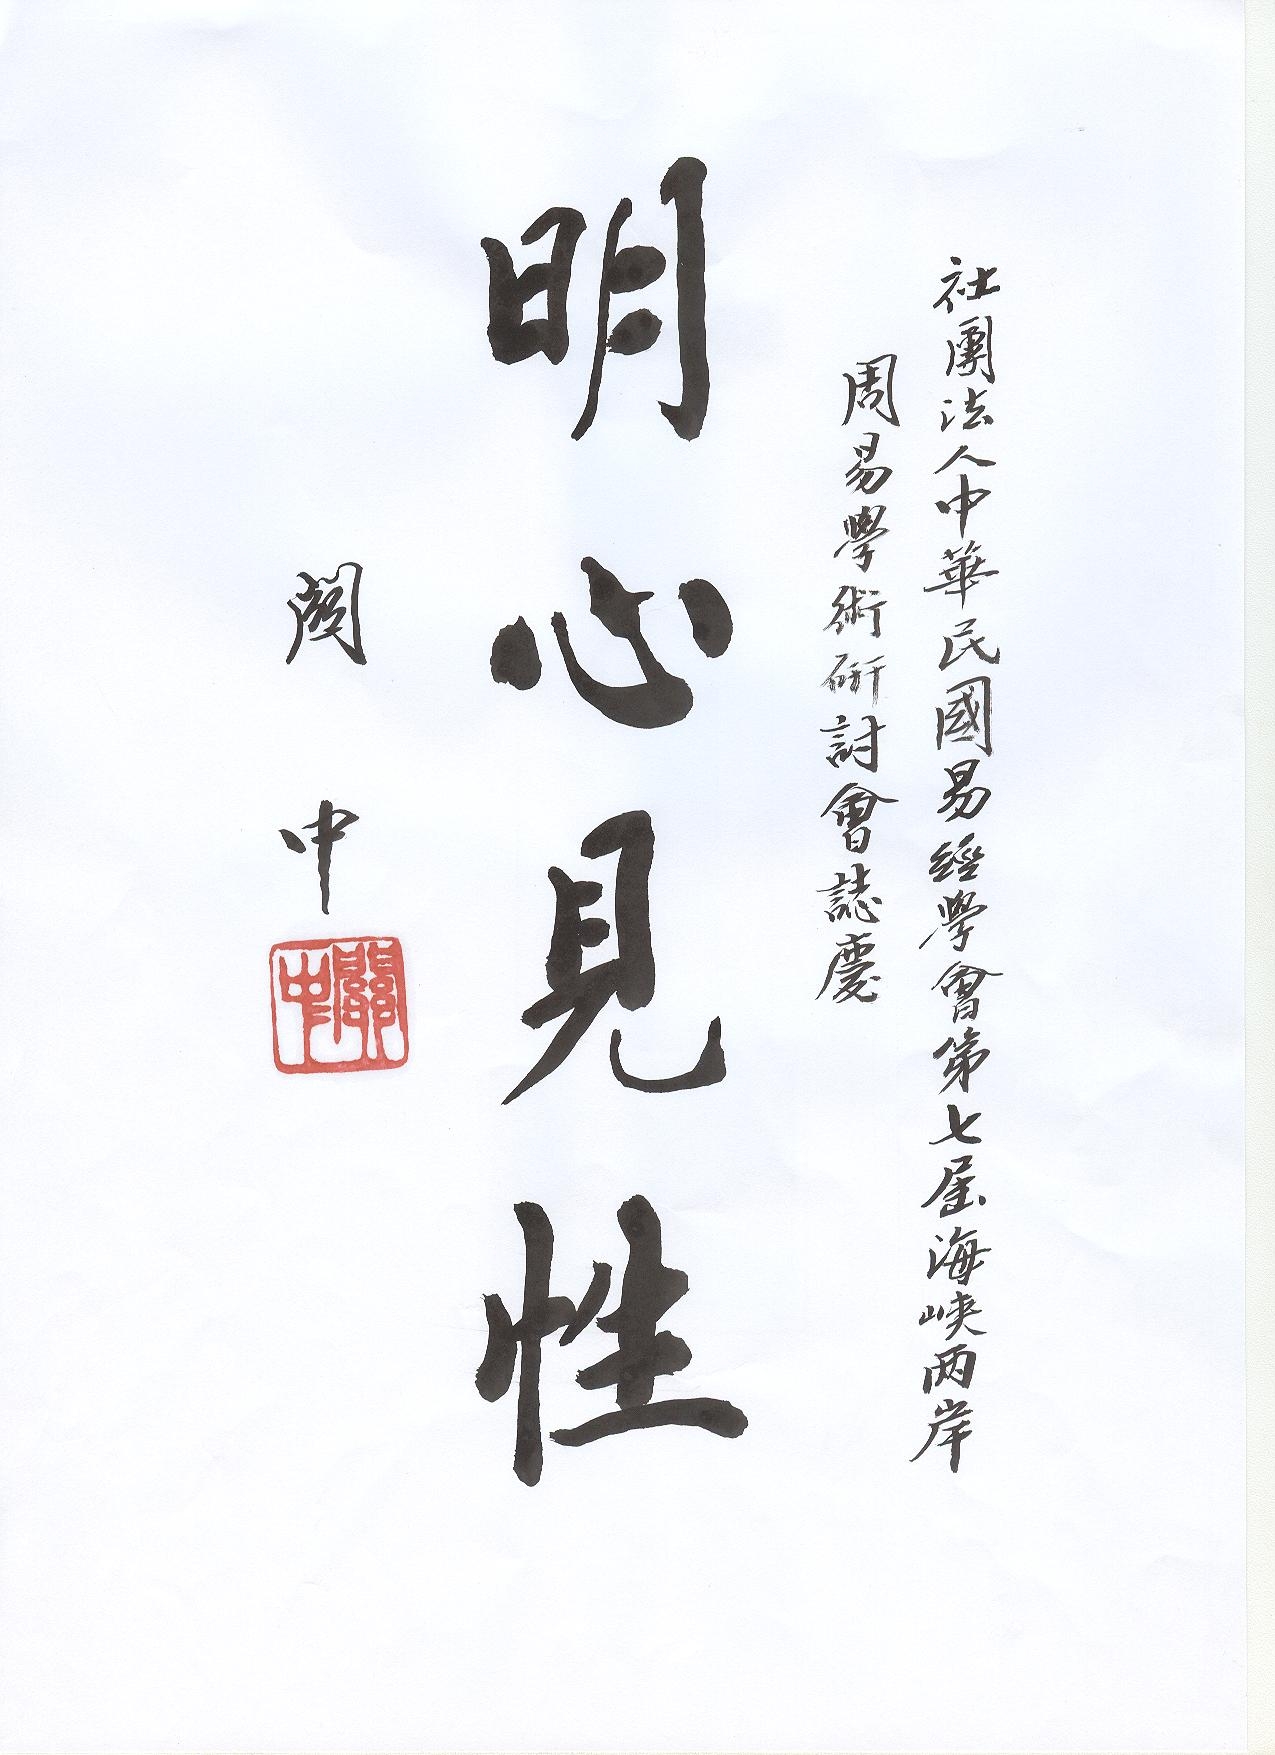 社團法人中華民國易經學會第七屆海峽两岸
周易學術研討會誌慶
明心見性
關中
關中